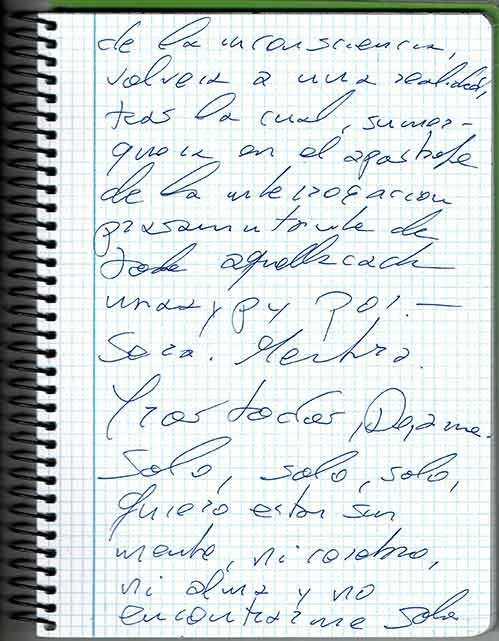 de la inconsciencia,
volvera a una realidad,
tras la cual, sumer-
en el apostrofe
de la interrogacion
de
toda aquella cade
y
Seca. Mentira.
Tras todas, Dejame.
Solo, solo, solo,
Quiero estar sin
mente, ni cerebro,
ni alma y no
encontrarme solo